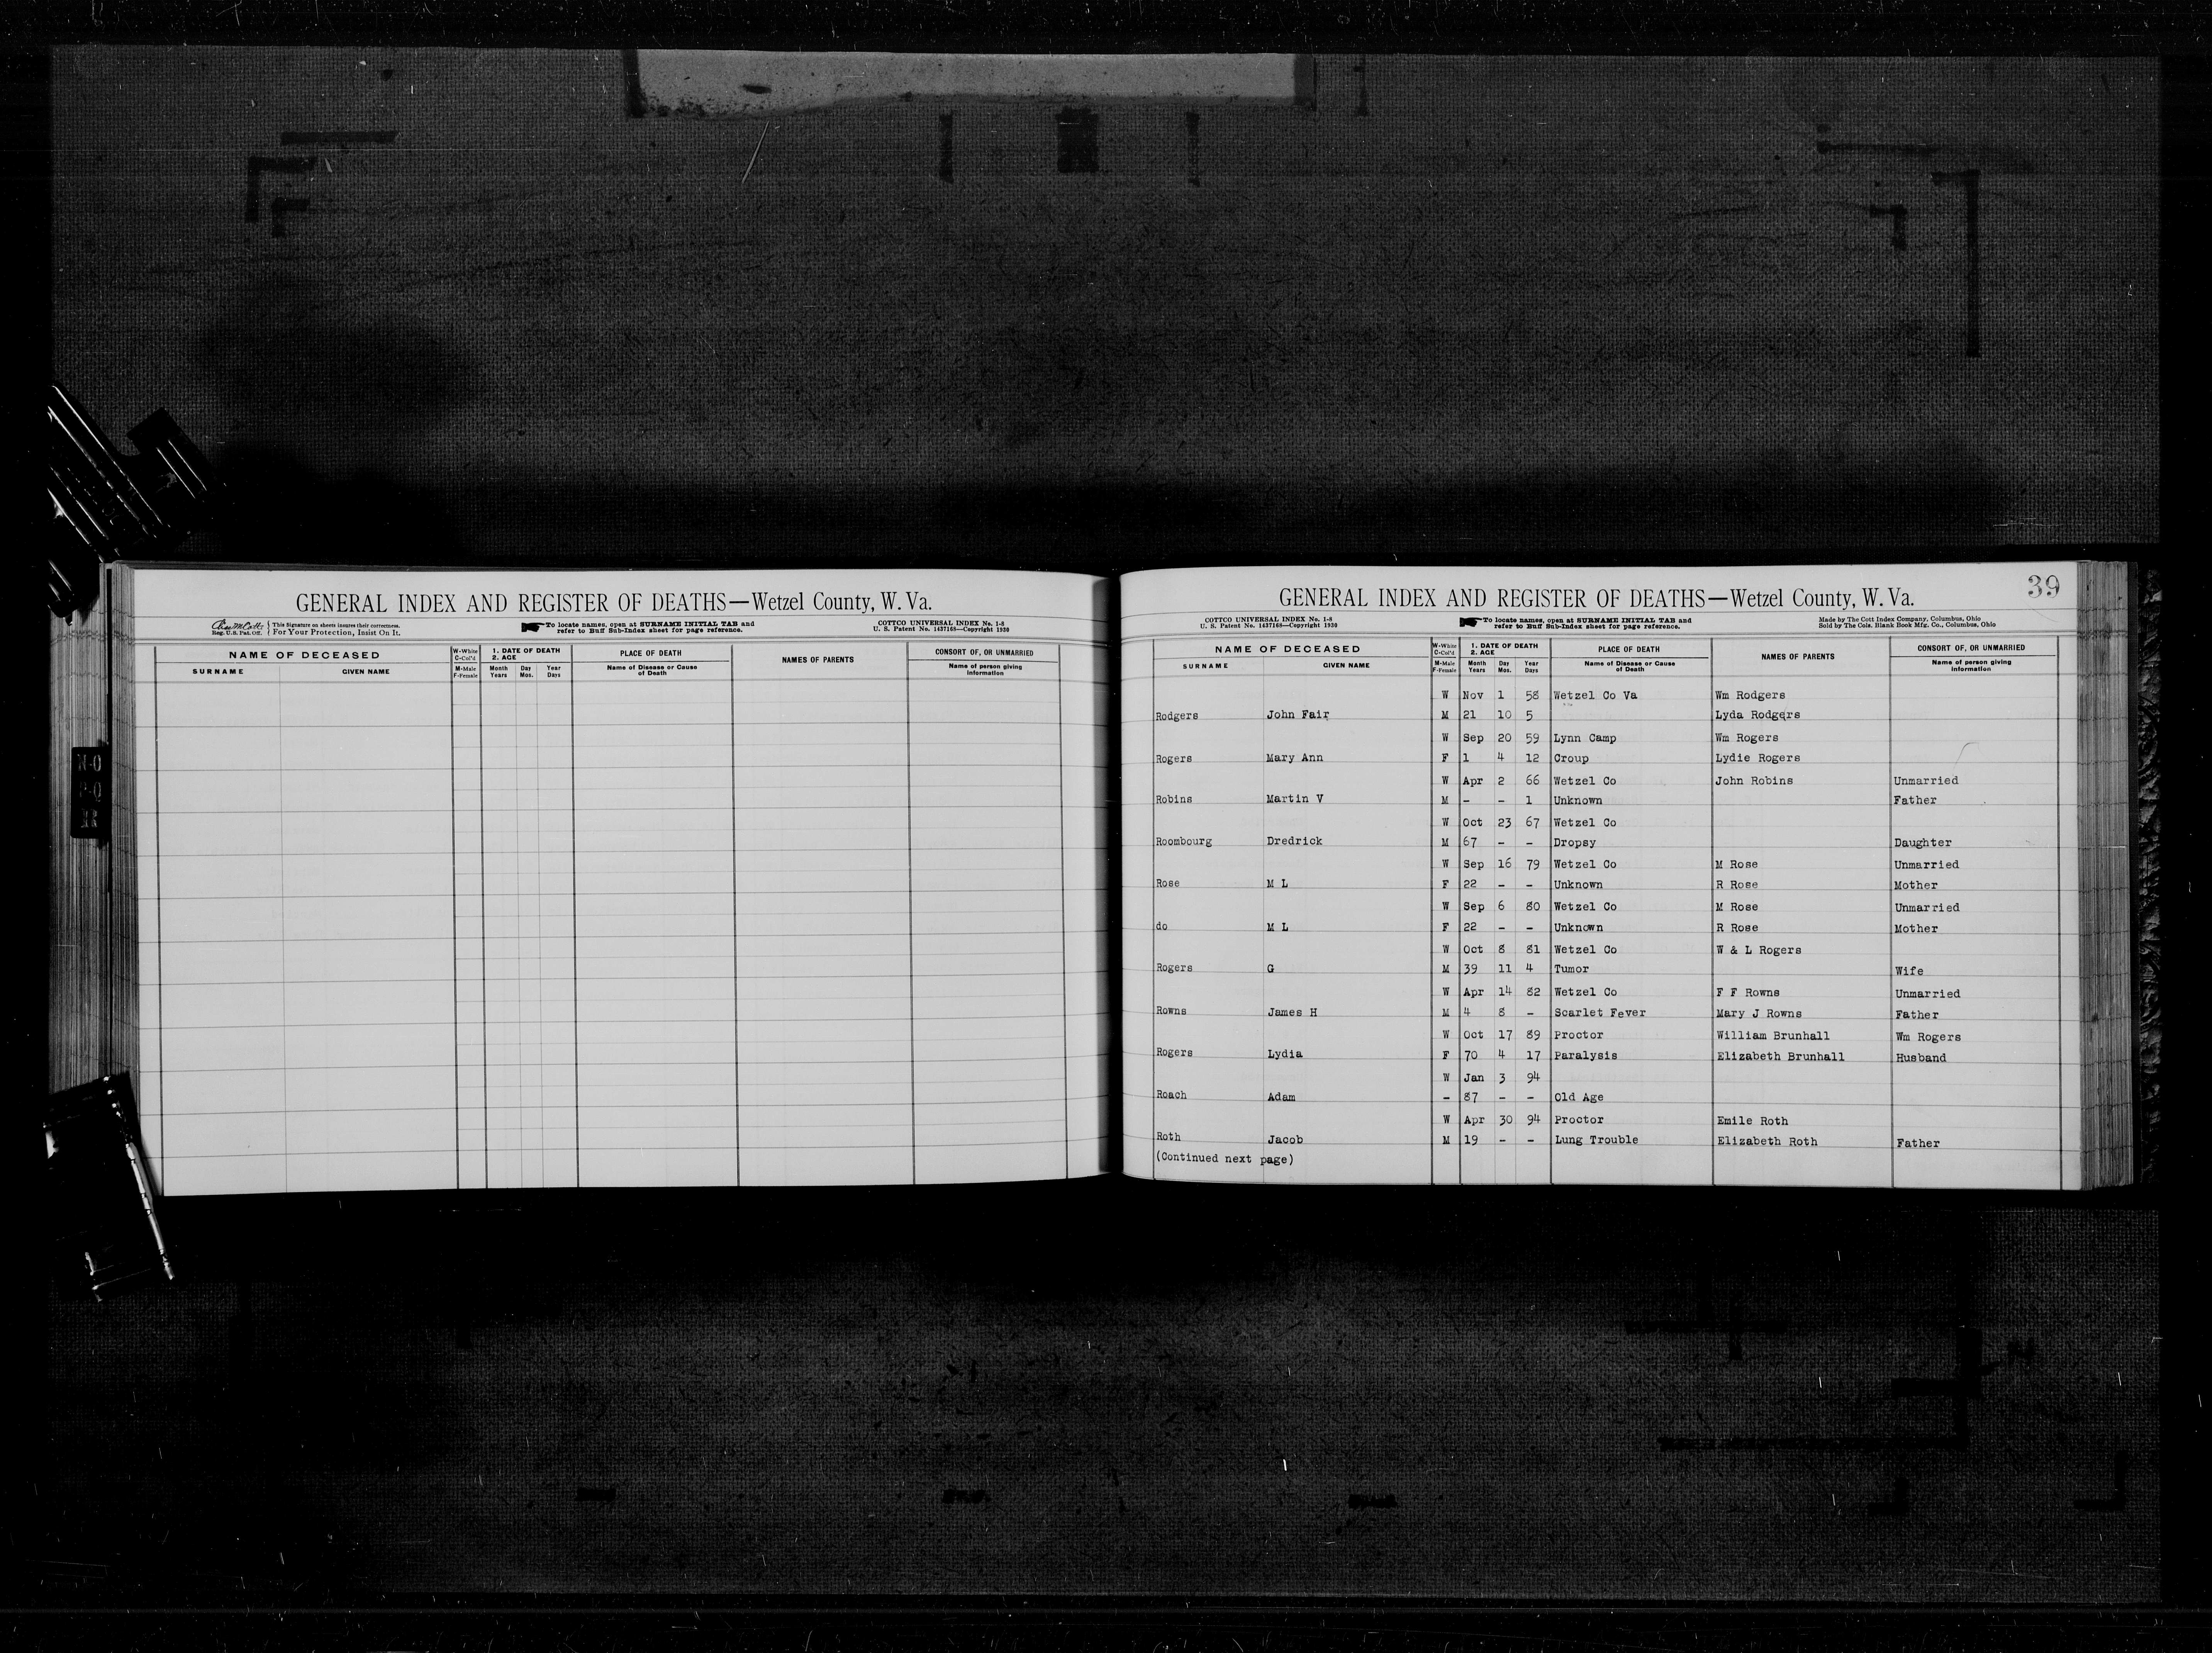 GENERAL INDEX AND REGISTER OF DEATHS—Wetzel County, W. Va.
Reg. U.S. Pat. Off. { This Signature on sheets insures their correctness. For Your Protection, Insist On It.
To locate names, open at SURNAME INITIAL TAB and refer to Buff Sub-Index sheet for page reference.
COTTCO UNIVERSAL INDEX No. 1-8
U. S. Patent No. 1437168—Copyright 1930
NAME OF DECEASED W-White C-Col'd 1. DATE OF DEATH 2. AGE PLACE OF DEATH NAMES OF PARENTS CONSORT OF, OR UNMARRIED
SURNAME GIVEN NAME M-Male F-Female Month Years Day Mos. Year Days Name of Disease or Cause of Death Name of person giving information
N-O
P-Q
R
39
GENERAL INDEX AND REGISTER OF DEATHS—Wetzel County, W. Va.
COTTCO UNIVERSAL INDEX No. 1-8
U. S. Patent No. 1437168—Copyright 1930
To locate names, open at SURNAME INITIAL TAB and refer to Buff Sub-Index sheet for page reference.
Made by The Cott Index Company, Columbus, Ohio
Sold by The Cols. Blank Book Mfg. Co., Columbus, Ohio
NAME OF DECEASED W-White C-Col'd 1. DATE OF DEATH 2. AGE PLACE OF DEATH NAMES OF PARENTS CONSORT OF, OR UNMARRIED
SURNAME GIVEN NAME M-Male F-Female Month Years Day Mos. Year Days Name of Disease or Cause of Death Name of person giving information
W Nov 1 58 Wetzel Co Va Wm Rodgers
Rodgers John Fair M 21 10 5 Lyda Rodgers
W Sep 20 59 Lynn Camp Wm Rogers
Rogers Mary Ann F 1 4 12 Croup Lydie Rogers
W Apr 2 66 Wetzel Co John Robins Unmarried
Robins Martin V M - - 1 Unknown Father
W Oct 23 67 Wetzel Co
Roombourg Dredrick M 67 - - Dropsy Daughter
W Sep 16 79 Wetzel Co M Rose Unmarried
Rose M L F 22 - - Unknown R Rose Mother
W Sep 6 80 Wetzel Co M Rose Unmarried
do M L F 22 - - Unknown R Rose Mother
W Oct 8 81 Wetzel Co W & L Rogers
Rogers G M 39 11 4 Tumor Wife
W Apr 14 82 Wetzel Co F F Rowns Unmarried
Rowns James H M 4 8 - Scarlet Fever Mary J Rowns Father
W Oct 17 89 Proctor William Brunhall Wm Rogers
Rogers Lydia F 70 4 17 Paralysis Elizabeth Brunhall Husband
W Jan 3 94
Roach Adam - 87 - - Old Age
W Apr 30 94 Proctor Emile Roth
Roth Jacob M 19 - - Lung Trouble Elizabeth Roth Father
(Continued next page)